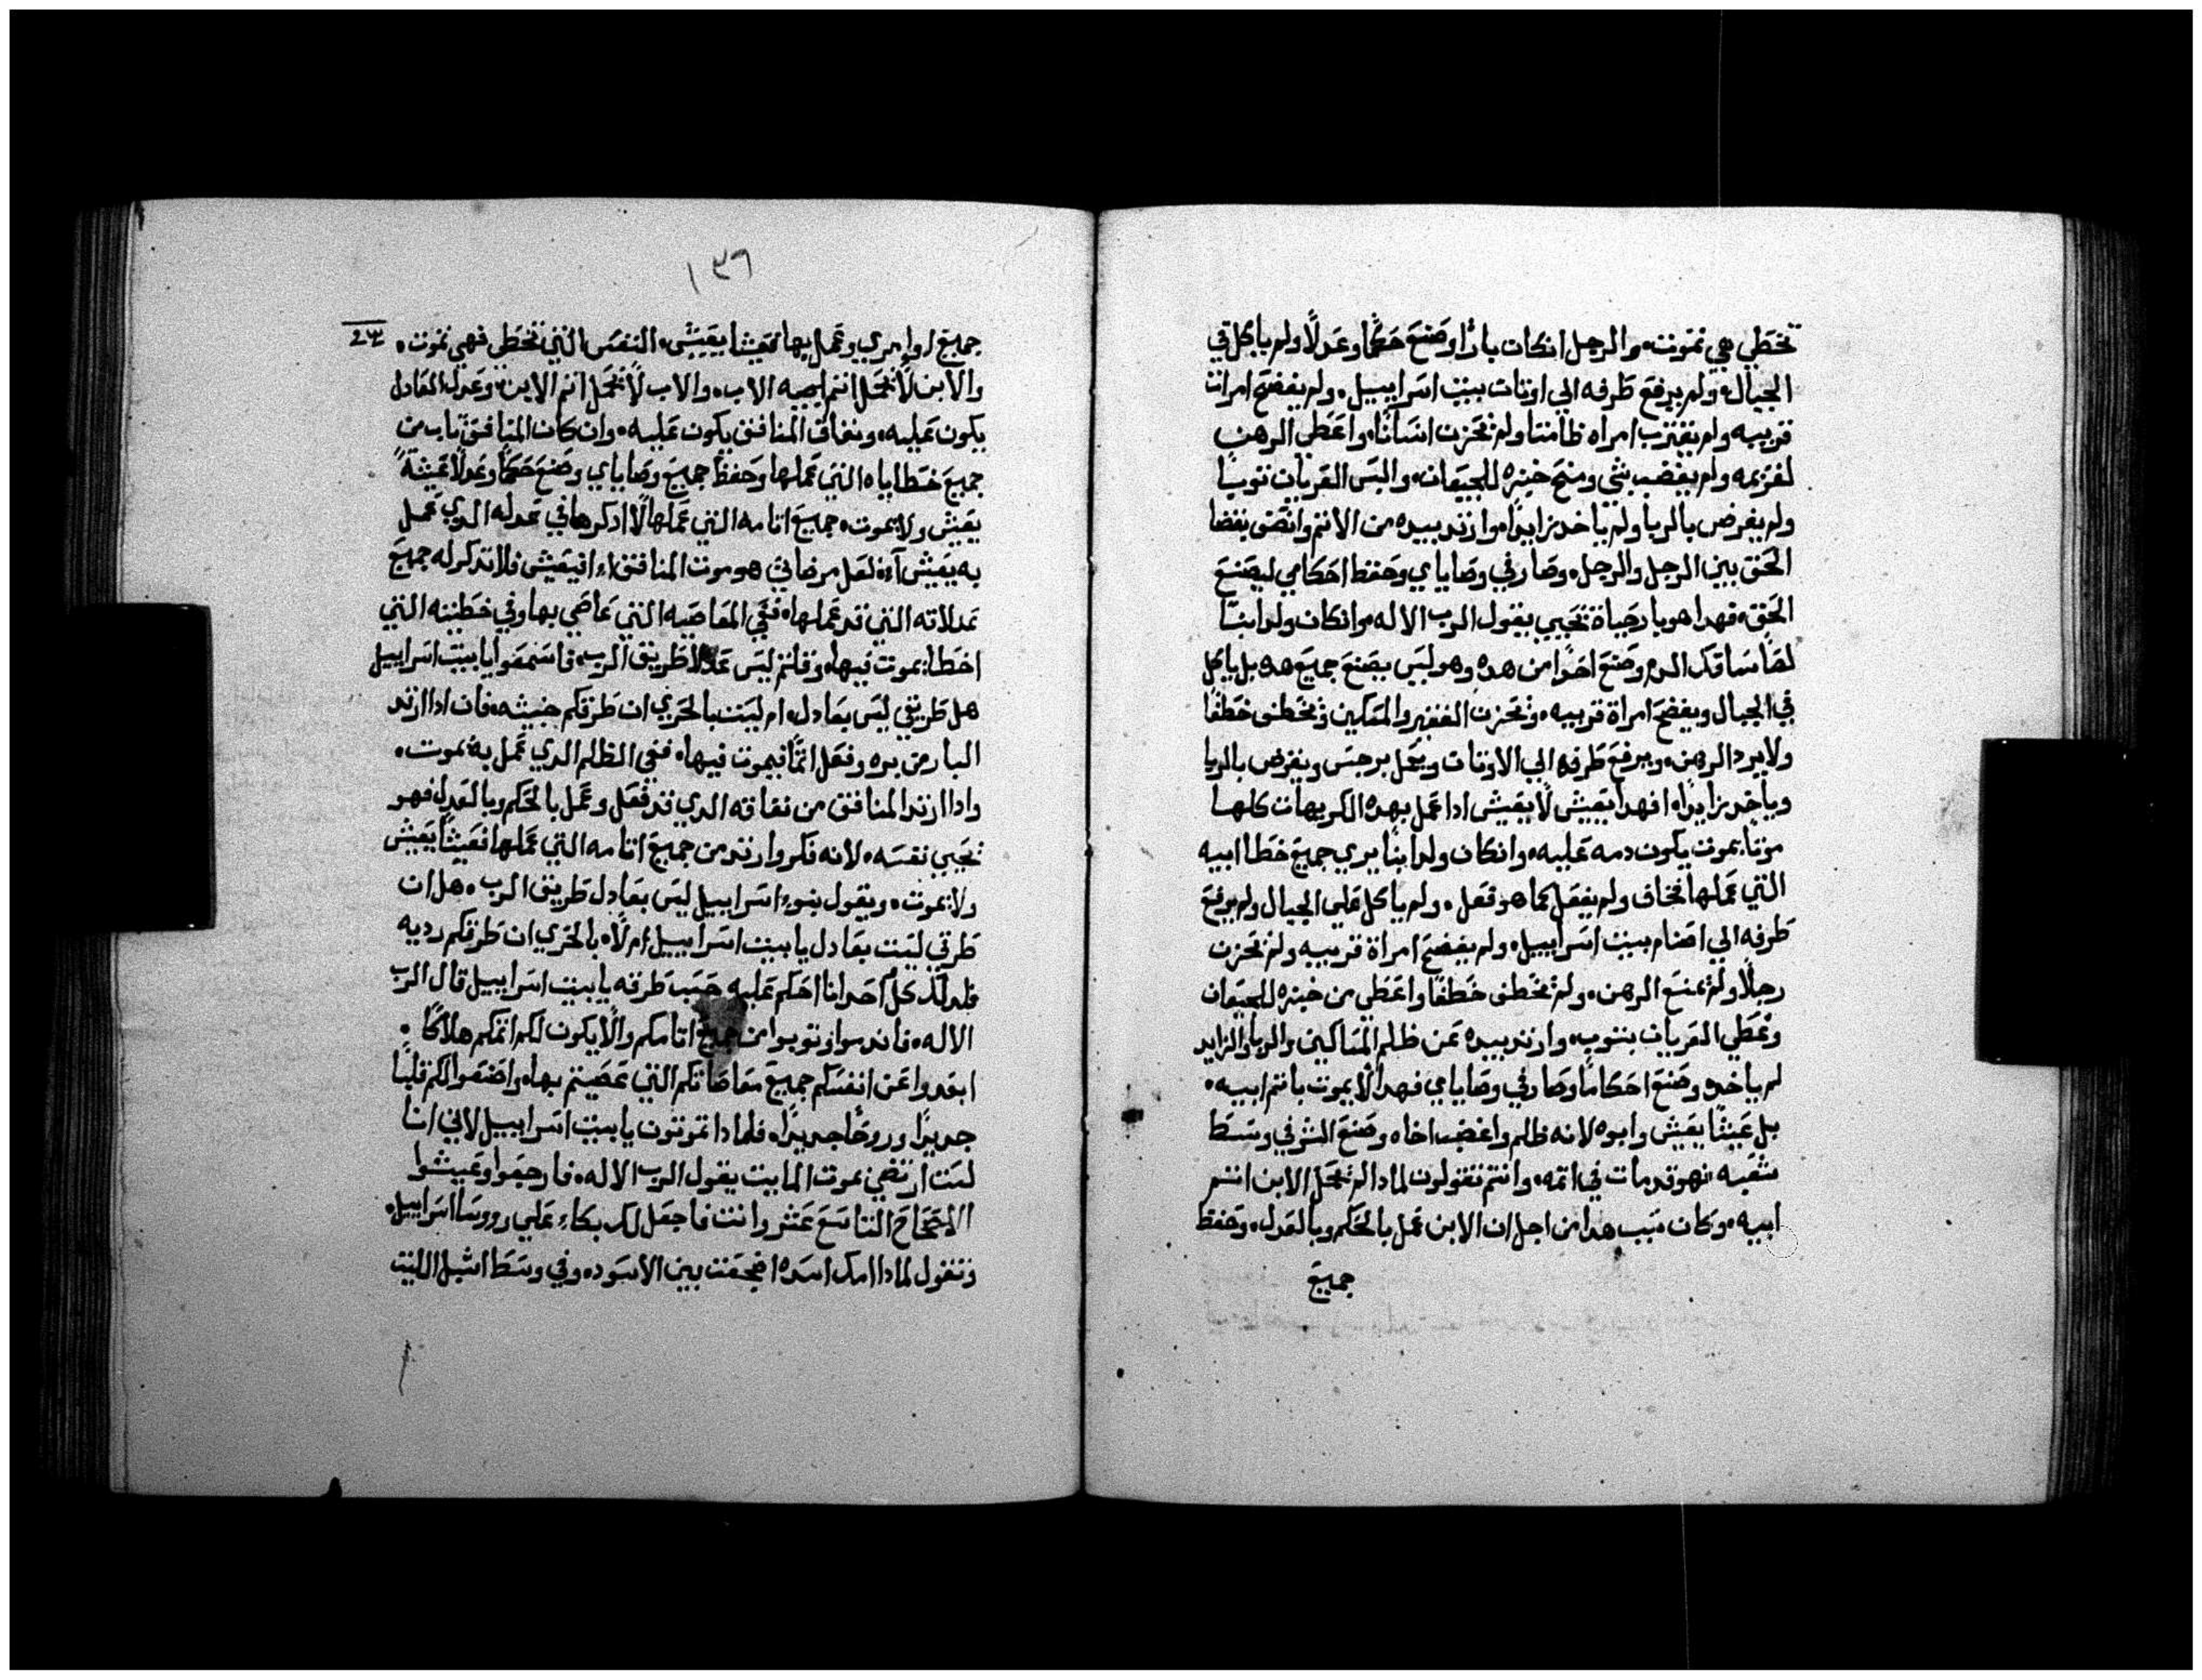 تخطي هي تموت. والرجل انكان بارًا وصنع حكمًا وعدلًا ولم ياكل في
الجبال. ولم يرفع طرفه الي اوتات بيت اسراييل. ولم يفضح امراة
قريبه ولم يقترب امراه طامتا ولم تحزن انسانًا. واعطي الرهن
لغريمه ولم يغضب شي ومنح خبزه للجيعان. والبس العريان توبًا
ولم يقرض بالربا ولم ياخد زايدًا. وارتد بيده من الاتم وانصى بقضا
الحق بين الرجل والرجل. وصار في وصاياي وحفظ احكامي ليصنع
الحق. فهدا هو بار حياة تحيي يقول الرب الاله. وانكان ولد ابنًا
لصًا سافك الدم وصنع احدًا من هده وهو ليس يصنع جميع هده بل ياكل
في الجبال ويفضح امراة قريبه. وتحزن الفقير والمسكين وتخطف خطفًا
ولا يرد الرهن. ويرفع طرفه الي الاوتات ويعمل برجس ويقرض بالربا
وياخد زايدًا. افهدا يعيش لا يعيش ادا عمل بهده الكريهات كلها
موتًا يموت يكون دمه عليه. وانكان ولد ابنًا يري جميع خطا ابيه
التي عملها فخاف ولم يفعل كما هو فعل. ولم ياكل علي الجبال ولم يرفع
طرفه الي اصنام بيت اسراييل. ولم يفضح امراة قريبه ولم تحزن
رجلًا ولم تمنع الرهن. ولم تخطف خطفًا واعطي من خبزه للجيعان
وغطي العريان بتوب. وارتد بيده عن ظلم المساكين والربا والزايد
لم ياخده وصنع احكامًا وصار في وصاياي فهدا لا يموت باتم ابيه.
بل عيشًا يعيش وابوه لانه ظلم واغضب اخاه وصنع الشر في وسط
شعبه فهو قد مات في اتمه. وانتم تقولون لمادا لم تحمل الابن اتم
ابيه. وكان سبب هدا من اجل ان الابن عمل بالحكم وبالعدل. وحفظ
جميع
١٣٦
جميع اوامري وعمل بها فعيشا يعيش. النفس التي تخطي فهي تموت.
والابن لا تحمل اتم ابيه الاب. والاب لا تحمل اتم الابن. وعدل العادل
يكون عليه. ونفاق المنافق يكون عليه. وان كان المنافق تاب من
جميع خطاياه التي عملها وحفظ جميع وصاياي وصنع حكمًا وعدلًا عيشةً
يعيش ولا يموت. جميع اتامه التي عملها لا ادكرها في عدله الدي عمل
به يعيش لعل مرضاتي هو موت المنافق فلا تدكر له جميع
عدلاته التي قد عملها. ففي المعاصيه التي عاصي بها وفي خطيته التي
اخطا يموت فيها. وقلتم ليس عدلا طريق الرب. فاسمعوا يا بيت اسراييل
هل طريقي ليس بعادل. ام ليست بالحري ان طرقكم خبيثه. فان ادا ارتد
البار من بره وفعل اتمًا فيموت فيها. ففي الظلم الدي عمل به يموت.
وادا ارتد المنافق من نفاقه الدي قد فعل وعمل بالحكم وبالعدل فهو
تحيي نفسه. لانه فكر وارتد من جميع اتامه التي عملها فعيشًا يعيش
ولا يموت. ويقول بنو اسراييل ليس بعادل طريق الرب. هل ان
طرقي ليست بعادل يا بيت اسراييل ام لا. بالحري ان طرقكم رديه
فلدلك كل احد انا احكم عليه حسب طرقه يا بيت اسراييل قال الرب
الاله. فاندموا وتوبوا من جميع اتامكم والا يكون لكم اتمكم هلاكًا.
ابعدوا عن انفسكم جميع معاصاتكم التي عصيتم بها. واصنعوا لكم قلبًا
جديدًا وروحًا جديدًا. فلمادا تموتون يا بيت اسراييل لاني انا
لست ارتضي بموت المايت يقول الرب الاله. فارجعوا وعيشوا
الاصحاح التاسع عشر وانت فاجعل لك بكاء علي رووسا اسراييل.
وتقول لمادا امك اسده اضجعت بين الاسود. وفي وسط اشبل الليت